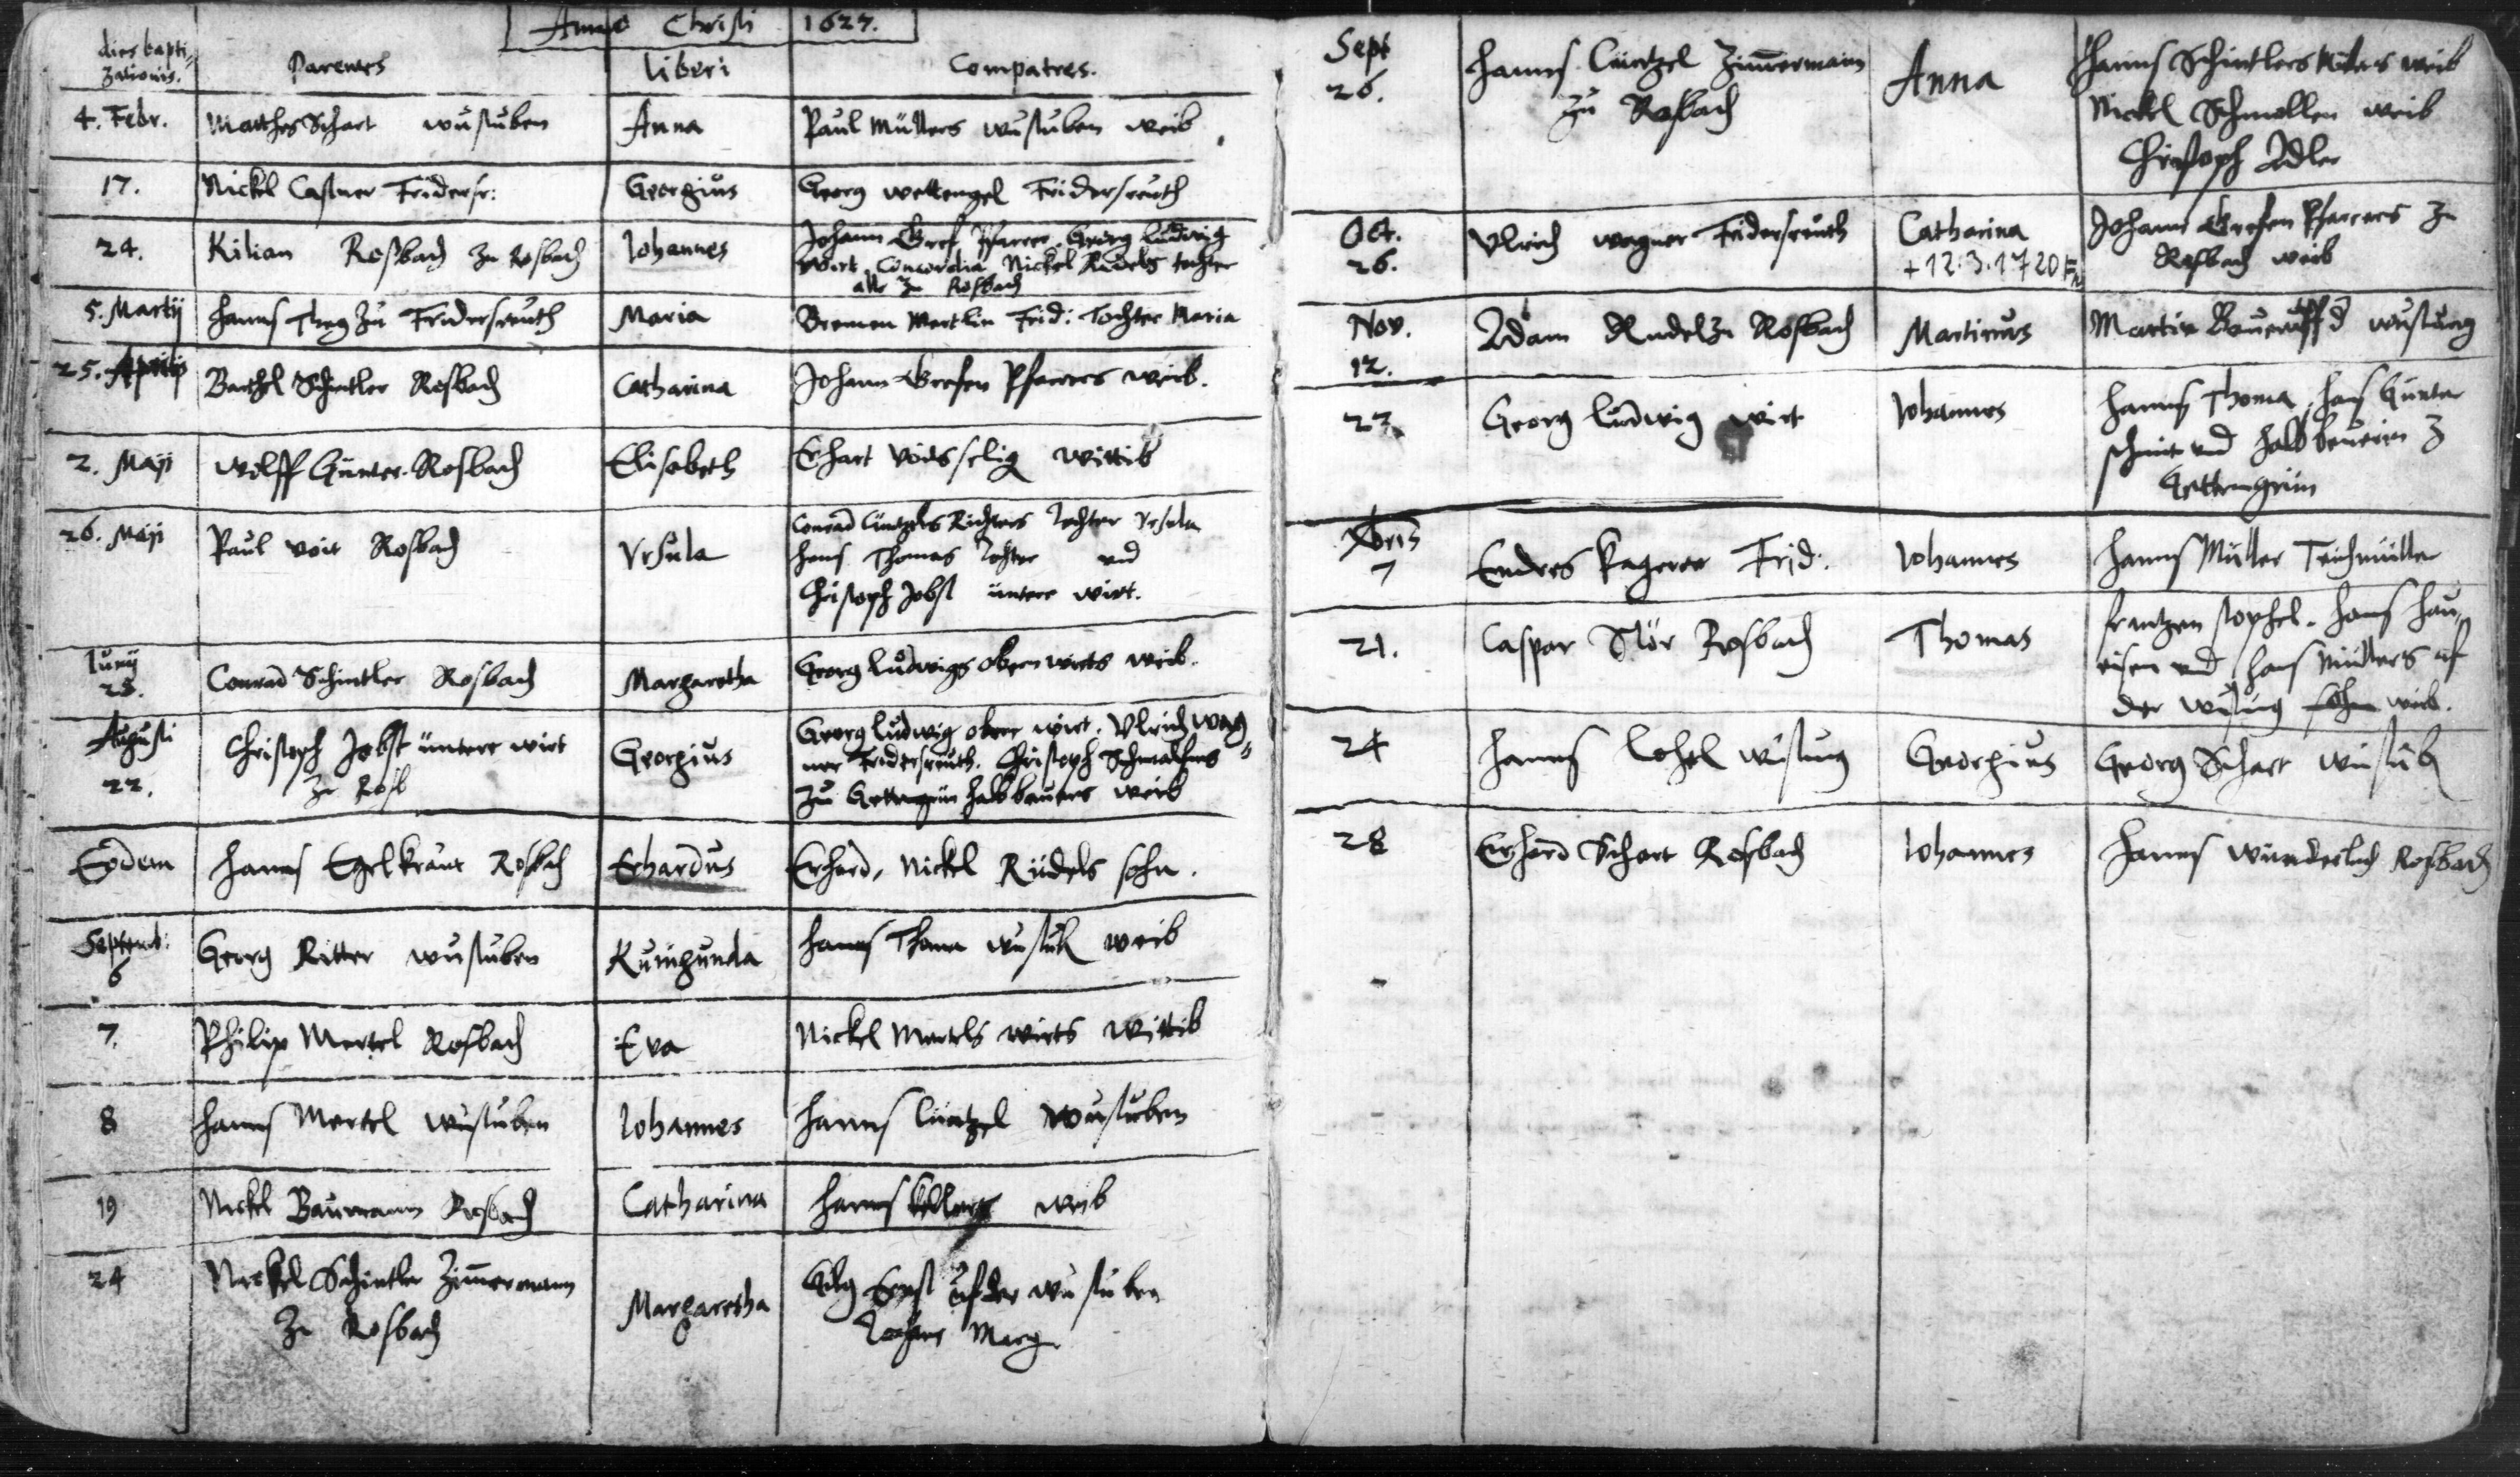 Anno Christi 1627.
dies bapti-
zationis. Parentes liberi Compatres.
4. Febr. Matthes Schart wustuben Anna Paul Müllers wustuben weib
17. Nickel Castner Fridersr: Georgius Georg wettengel Fridersreuth
24. Kilian Rosbach zu Rosbach Johannes Johann Gref Pfarrer. Georg Ludwig
wirt. Concordia Nickel Rüdels tochter
alle zu Rosbach
5. Martij hanns zu Fridersreuth Maria Mertlin Frid: Tochter Maria
25. Aprilis Barthel Schintler Rosbach Catharina Johann Grefen Pfarrers weib.
2. Maji wolff Günter Rosbach Elisabeth Erhart Voits selig wittib
26. Maji Paul voit Rosbach Vrsula Conrad Cüntzels Richters tochter Vrsula
hans Thomas tochter vnd
Christoph Jobst untere wirt.
Junij
25. Conrad Schintler Rosbach Margaretha Georg Ludwigs obern wirts weib.
Augusti
22. Christoph Jobst untere wirt
zu Rosb Georgius Georg Ludwig obere wirt. Vlrich wag
ner Fridersreuth. Christoph
zu Gettengrün halbbauers weib
Eodem hanns Egelkraut Rosbach Erhardus Erhard, Nickel Rüdels sohn.
Septemb:
6 Georg Ritter wustuben Kunigunda hanns Thoma wustub weib
7. Philip Mertel Rosbach Eva Nickel Mertels wirts wittib
8 hanns Mertel wustuben Johannes hanns Cüntzel wustuben
19 Nickel Baumann Rosbach Catharina hanns weib
24 Nickel Schintler Zimmermann
zu Rosbach Margaretha Ernst uf der wustuben
tochter Marg.
Sept
26. hanns Cüntzel Zimmermann
zu Rosbach Anna hanns Schintlers weib
Nickel weib
Christoph Adler
Oct.
26. Vlrich wagner Fridersreuth Catharina
+ 12.3.1720 Johann Grefen Pfarrers zu
Rosbach weib
Nov.
12. Adam Rudel zu Rosbach Martinus Martin uff d wustung
23. Georg Ludwig wirt Johannes hanns Thoma, hans Günter
schmit vnd halbbeuerin z
Gettengrün
Xbris
7 Endres Frid: Johannes hanns Müller Teichmüller
21. Caspar Stör Rosbach Thomas frantzen stophel. hans hau
eisen vnd hans Müllers uf
der wustung weib.
24 hanns Lohel wustung Georgius Georg Schart wustub
28 Erhard Schart Rosbach Johannes hanns wunderlich Rosbach